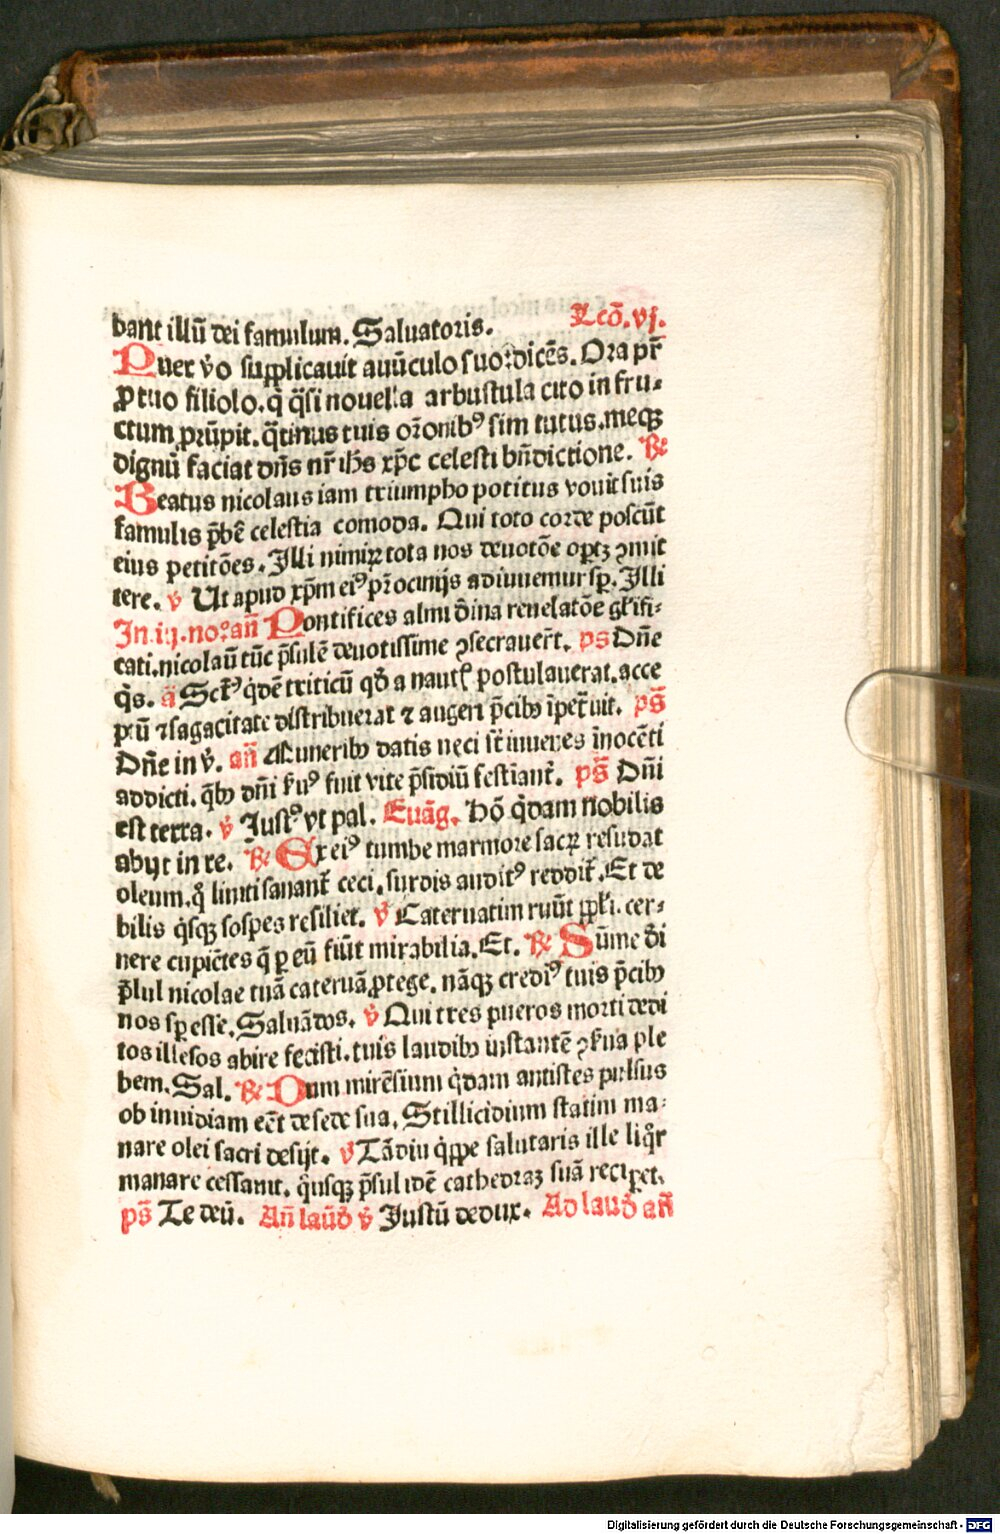 bant illū dei famulum. Saluatoris. Lcō. vj.
Puer v̄o supplicauit auūculo suo: dicēs. Ora pr̄
ꝓ tuo filiolo. q̄ q̄si nouella arbustula cito in fru-
ctum prūpit. q̄tinus tuis or̄onibꝰ sim tutus. meqꝫ
dignū faciat dn̄s nr̄ ih̄s xp̄c celesti bn̄dictione. ℟
Beatus nicolaus iam triumpho potitus nouit suis
famulis p̄bē celestia comoda. Qui toto corde poscūt
eius petitōes. Illi nimiꝝ tota nos deuotōe optꝫ ꝯmit
tere. ℣ Ut apud xp̄m eiꝰ pr̄ocinijs adiuuemur sp̄. Illi
In .iij. no: an̄ Pontifices almi d̄ina reuelatōe gl̄ifi-
cati. nicolaū tūc p̄sulē deuotissime ꝯsecrauer̄t. ps Dn̄e
q̄s. ā Sct̄ꝰ q̇dē triticū qd̄ a naut̄ postulauerat. acce
ptū ⁊ sagacitate distribuerat ⁊ augeri p̄cibꝫ īpet̄uit. ps̄
Dn̄e in v̄. an̄ Muneribꝫ datis neci st̄ iuuenes īnocēti
addicti. q̇bꝫ dn̄i f̄uꝰ fuit vite p̄sidiū festīant̄. ps̄ Dn̄i
est terra. ℣ Iustꝰ vt pal. Euāg. Hō q̇dam nobilis
abijt in re. ℟ Ex eiꝰ tumbe marmore sacꝝ resudat
oleum. q̊ liniti sanant̄ ceci. surdis auditꝰ reddit̄. Et de
bilis q̇sqꝫ sospes resiliet. ℣ Cateruatim ruūt ppl̄i. cer-
nere cupiētes q̄ ꝑ eū fiūt mirabilia. Et. ℟ Sūme d̄i
p̄sul nicolae tuā cateruā ꝓtege. nāqꝫ crediꝰ tuis p̄cibꝫ
nos sp̄ esse. Saluādos. ℣ Qui tres pueros morti dedi
tos illesos abire fecisti. tuis laudibꝫ instantē ꝯf̄ua ple
bem. Sal. ℟ Dum mirēsium q̇dam antistes pulsus
ob inuidiam eēt de sede sua. Stillicidium statim ma-
nare olei sacri desijt. ℣ Tādiu q̇ppe salutaris ille liq̊r
manare cessauit. q̊usqꝫ p̄sul idē cathedraꝫ suā recipet.
ps̄ Te deū. An̄ laūd̄ ℣ Iustū dedux. Ad laud̄ an̄
Digitalisierung gefördert durch die Deutsche Forschungsgemeinschaft - DFG